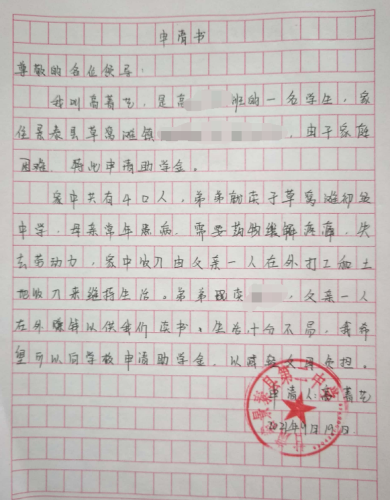 申请书
尊敬的各位领导:
我叫高青艺,是高 班的一名学生,家
住景泰县草窝滩镇 ,由于家庭
困难,特此申请助学金。
家中共有4口人,弟弟就读于草窝滩初级
中学,母亲常年患病,需要药物缓解疼痛,失
去劳动力,家中收入由父亲一人在外打工和土
地收入来维持生活。弟弟现读 ,父亲一人
在外赚钱以供我们读书。生活十分不易,我希
望可以向学校申请助学金,以减轻父母负担。
申请人:高青艺
2021年9月 日
景泰县第二中学